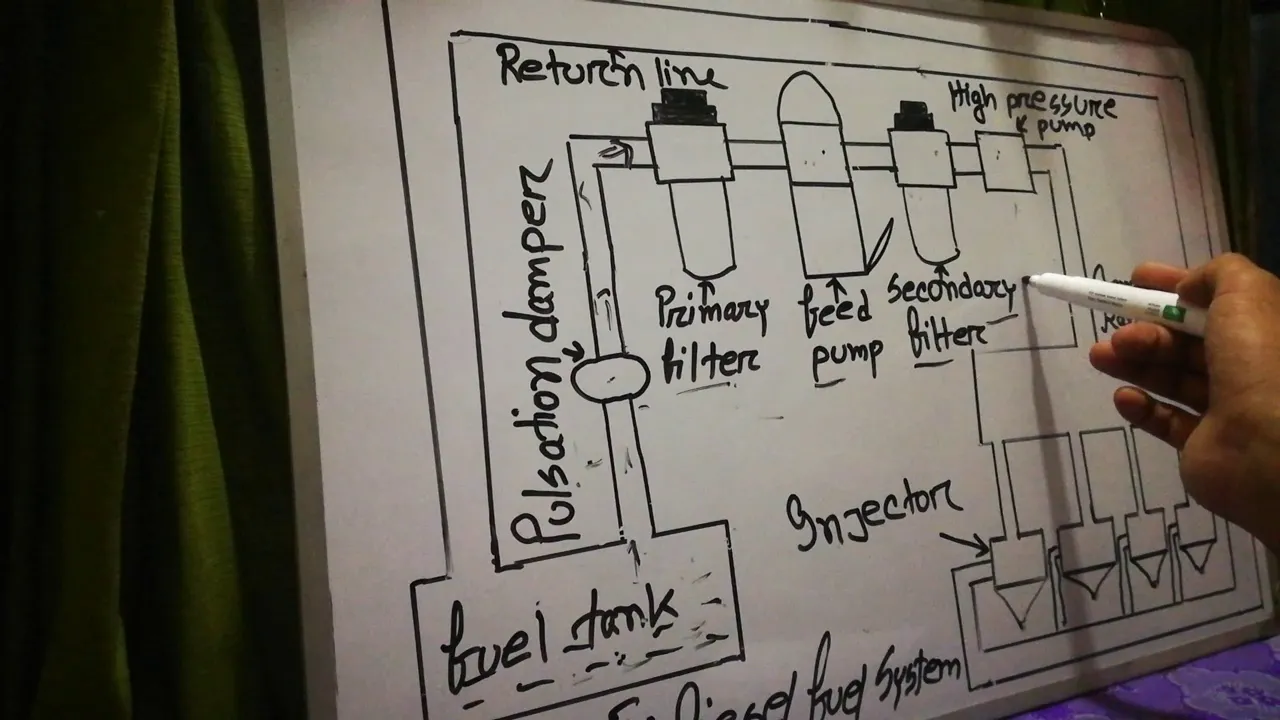 Return line
High pressure
pump
Pulsation damper
Primary
filter
feed
pump
Secondary
filter
Injector
fuel tank
Diesel fuel System